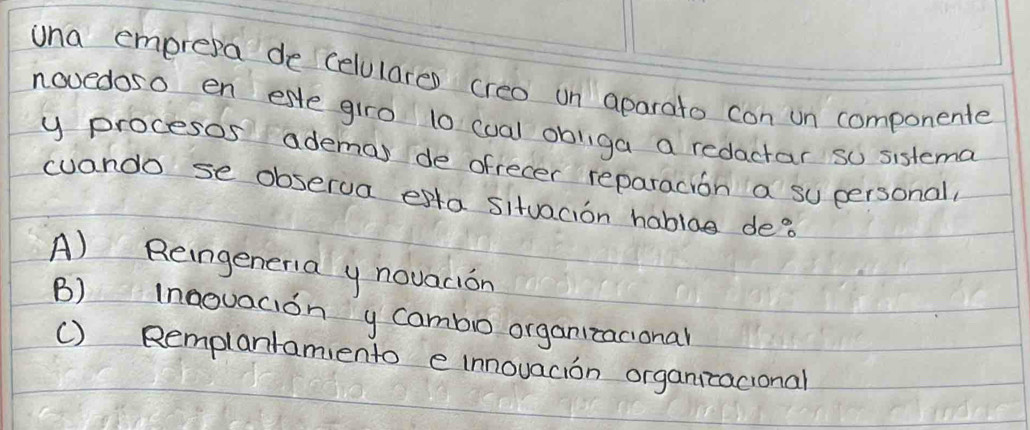 una empresa de celulares creo un aparato con un componente
novedoso en este giro lo cual obliga a redactar su sistema
y procesos ademas de ofrecer reparación a su personal,
cuando se observa esta situación hablas de:
A) Reingeneria y novación
B) innovación y cambio organizacional
C) Remplantamiento e innovación organizacional